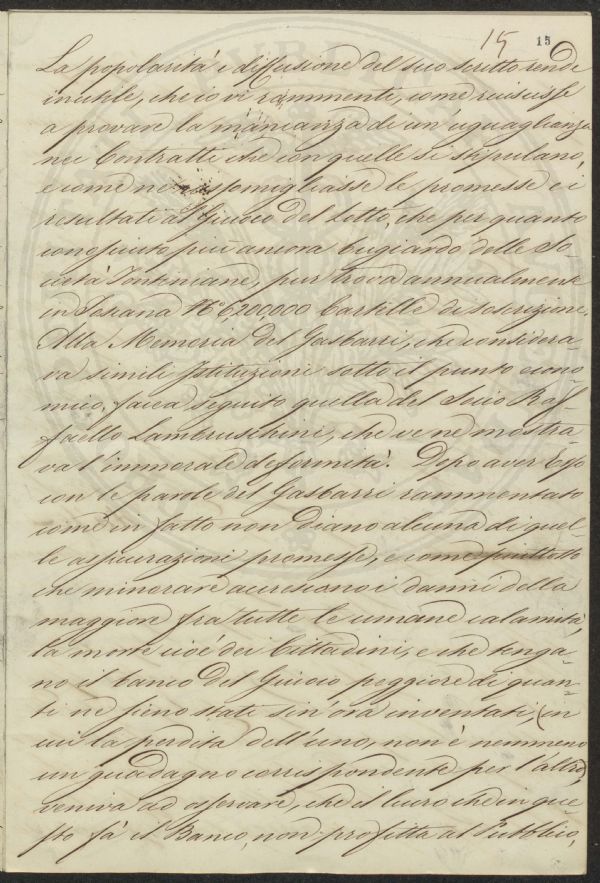 15 15
La popolarità e diffusione del suo scritto rende
inutile, che io vi rammenti, come riuscisse
a provare la mancanza di un'uguaglianza
nei Contratti che con quelle si stipulano,
e come ne assomigliasse le promesse e i
resultati al Giuoco del Lotto, che per quanto
conosciuto più ancora bugiardo delle So-
cietà Tontiniane, pur trova annualmente
in Toscana N° 6,200,000 Cartelle di soscrizione.
Alla Memoria del Gasbarri, che considera-
va simili Istituzioni sotto il punto econo
mico, facea seguito quella del Socio Raf-
faello Lambruschini, che ve ne mostra-
va l'immorale deformità. Dopo aver Esso
con le parole del Gasbarri rammentato
come in fatto non diano alcuna di quel-
le assicurazioni promesse, e come piuttosto
che minorare accrescono i danni della
maggiore fra tutte le umane calamità,
la morte cioè dei Cittadini, e che tenga-
no il banco del Giuoco peggiore di quan-
ti ne sieno stati sin'ora inventati, (in
cui la perdita dell'uno, non è nemmeno
un guadagno corrispondente per l'altro)
veniva ad osservare, che il lucro che in que-
sto fà il Banco, non profitta al Pubblico,